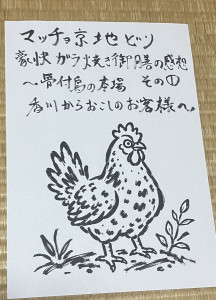 マッチョ京地どり
豪快ガラ焼き御膳の感想
〜骨付鳥の本場 その①
香川からおこしのお客様へ